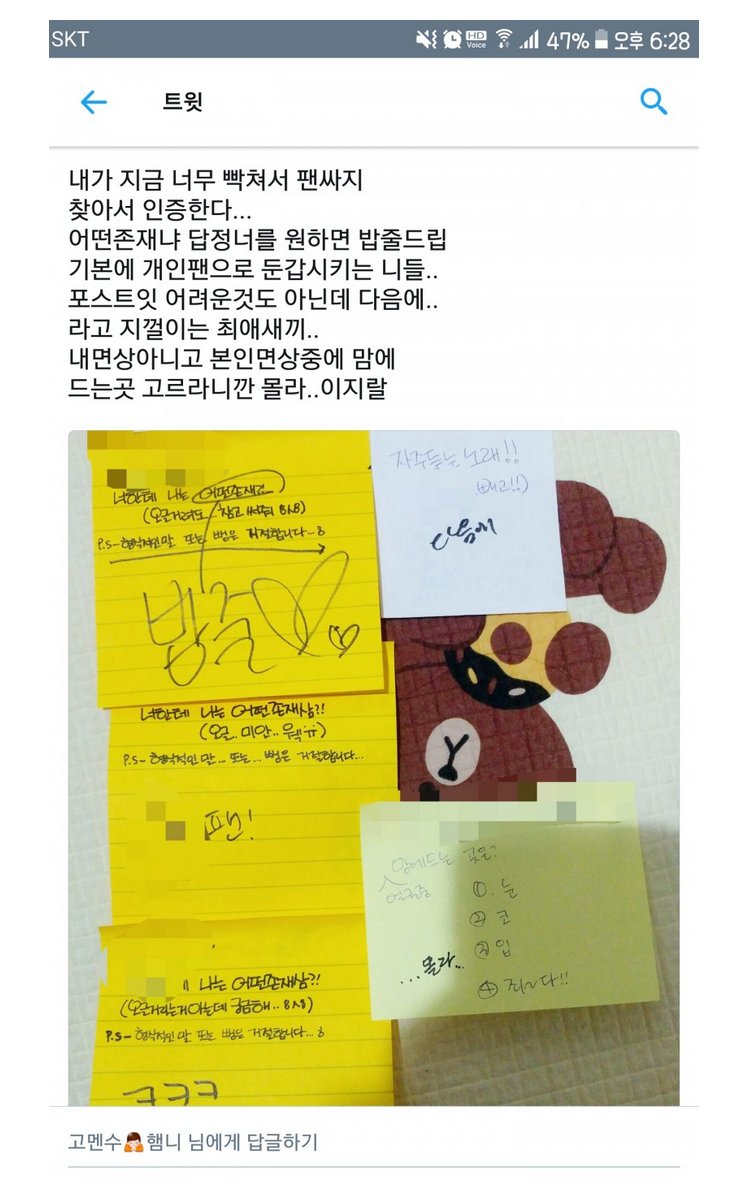 SKT
HD Voice 47% 오후 6:28
트윗
내가 지금 너무 빡쳐서 팬싸지
찾아서 인증한다...
어떤존재냐 답정너를 원하면 밥줄드립
기본에 개인팬으로 둔갑시키는 니들..
포스트잇 어려운것도 아닌데 다음에..
라고 지껄이는 최애새끼..
내면상아니고 본인면상중에 맘에
드는곳 고르라니깐 몰라..이지랄
너한테 나는 어떤존재감
(오글거려도 참고 써줘 8ㅅ8)
P.S-형식적인 말 또는 뻥은 거절합니다...
밥줄
자주듣는 노래!!
(빼고!!)
다음에
너한테 나는 어떤존재삼?!
(오글.. 미안.. 웩ㅠ)
P.S-형식적인 말... 또는... 뻥은 거절합니다...
팬!
나는 어떤존재삼?!
(오글거리는거 아는데 궁금해..8ㅅ8)
P.S-형식적인 말 또는 뻥은 거절합니다...
ㅋㅋㅋ
맘에드는 곳은?
얼굴중
① 눈
② 코
③ 입
...몰라...
④ 죄~다!!
고멘수🙇햄니 님에게 답글하기